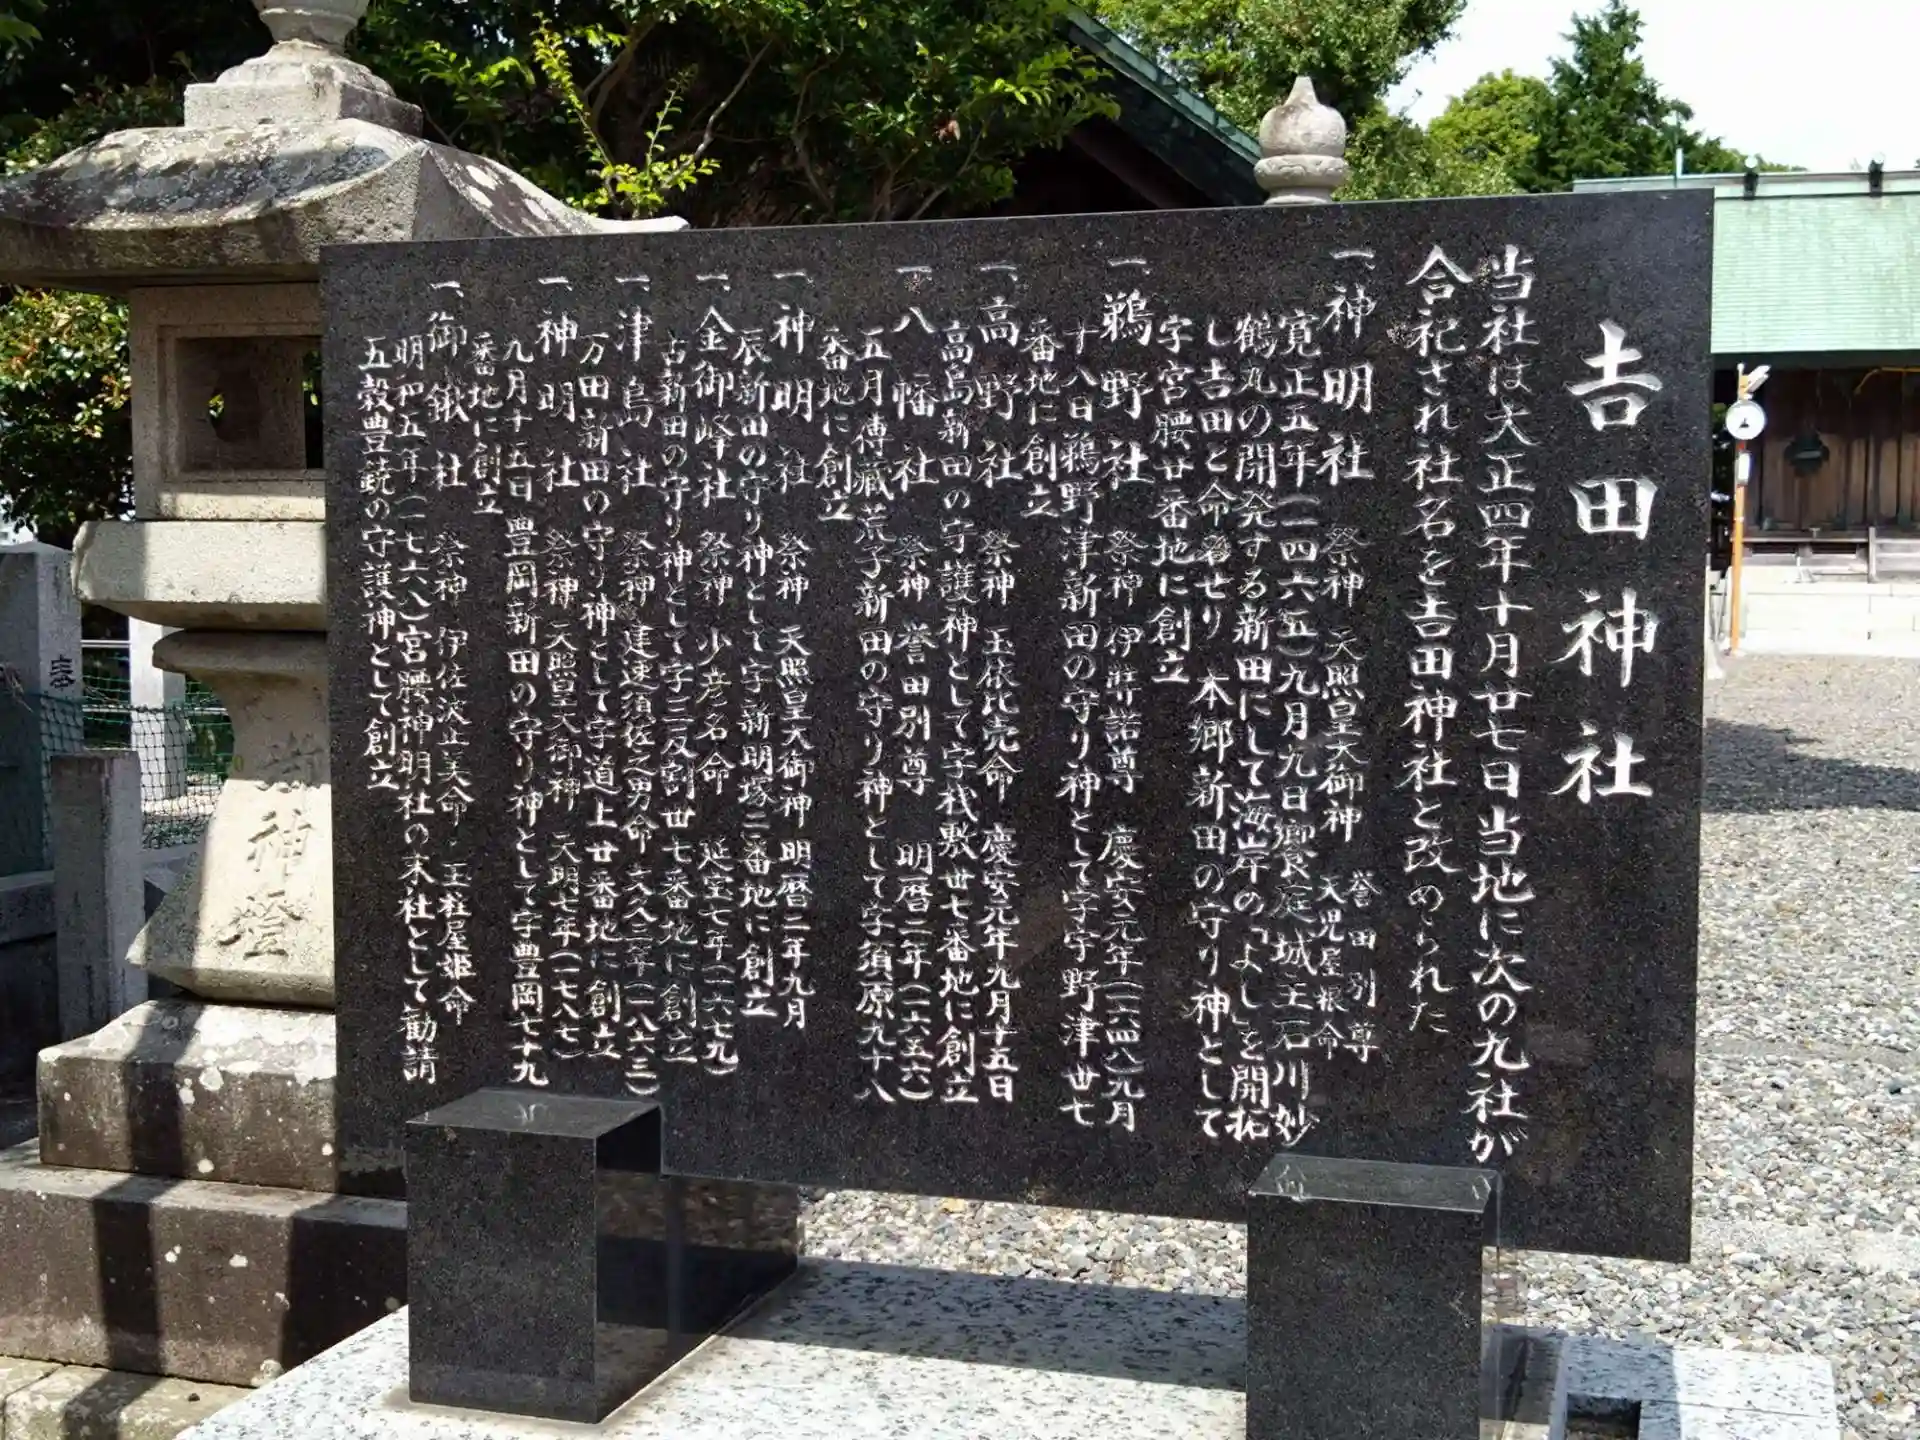 𠮷田神社
当社は大正四年十月廿七日当地に次の九社が
合祀され社名を𠮷田神社と改められた
一、神明社 祭神 天照皇大御神 誉田別尊 天児屋根命
寛正五年(一四六五)九月九日饗庭城主石川妙
鶴丸の開発する新田にして海岸の「よし」を開拓
し𠮷田と命名せり 本郷新田の守り神として
字宮腰廿番地に創立
一、鵜野社 祭神 伊弉諾尊 慶安元年(一六四八)九月
十八日鵜野津新田の守り神として字宇野津丗七
番地に創立
一、高野社 祭神 玉依比売命 慶安元年九月十五日
高島新田の守護神として字桟敷丗七番地に創立
一、八幡社 祭神 誉田別尊 明暦二年(一六五六)
五月傳蔵荒子新田の守り神として字須原九十八
番地に創立
一、神明社 祭神 天照皇大御神 明暦二年九月
辰新田の守り神として字新明塚二番地に創立
一、金御峰社 祭神 少彦名命 延宝七年(一六七九)
古新田の守り神として字三反割丗七番地に創立
一、津島社 祭神 建速須佐之男命 文久三年(一八六三)
万田新田の守り神として字道上廿番地に創立
一、神明社 祭神 天照皇大御神 天明七年(一七八七)
九月十五日豊岡新田の守り神として字豊岡七十九
番地に創立
一、御鍬社 祭神 伊佐波止美命・玉柱屋姫命
明和五年(一七六八)宮腰神明社の末社として勧請
五穀豊饒の守護神として創立
御神燈
奉